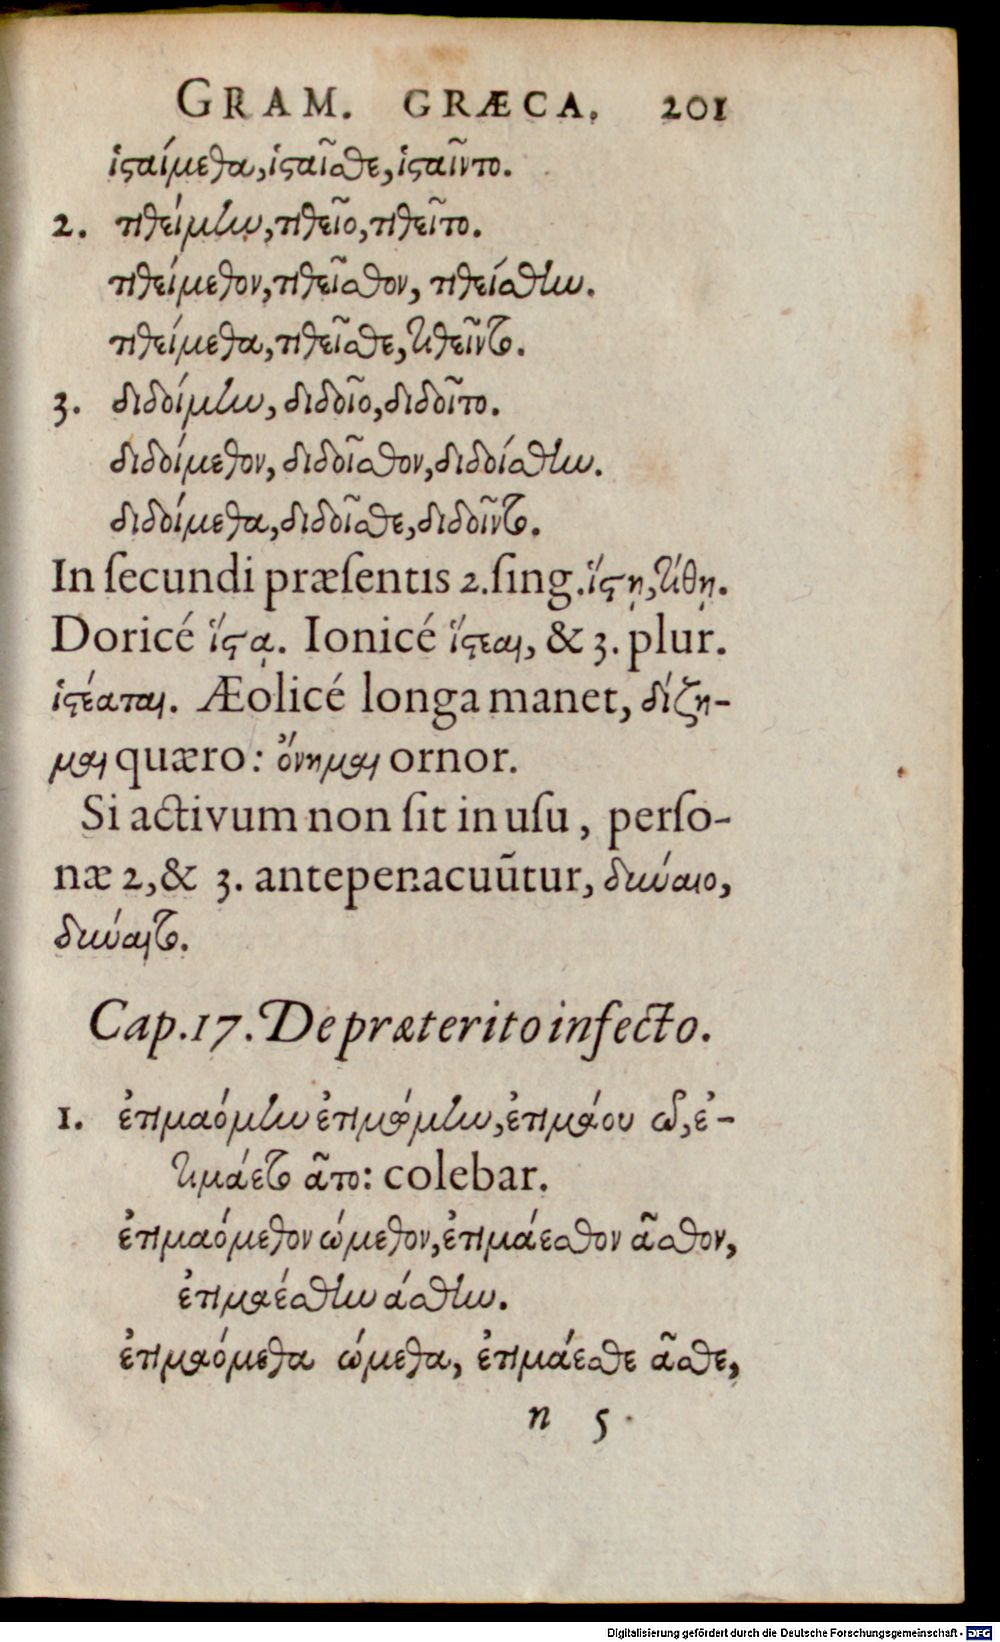 GRAM. GRÆCA. 201
ἱϛαίμεθα, ἱϛαῖσθε, ἱϛαῖντο.
2. τιθείμην, τιθεῖο, τιθεῖτο.
τιθείμεθον, τιθεῖσθον, τιθείσθην.
τιθείμεθα, τιθεῖσθε, τιθεῖντο.
3. διδοίμην, διδοῖο, διδοῖτο.
διδοίμεθον, διδοῖσθον, διδοίσθην.
διδοίμεθα, διδοῖσθε, διδοῖντο.
In ſecundi præſentis 2. ſing. ἵϛῃ, τίθῃ.
Doricé ἵϛᾳ. Ionicé ἵϛεαι, & 3. plur.
ἱϛέαται. Æolicé longa manet, δίζη-
μαι quæro: ὄνημαι ornor.
Si activum non ſit in uſu, perſo-
næ 2, & 3. antepenacuũtur, δύναιο,
δύναιτο.
Cap. 17. De præterito infecto.
1. ἐτιμαόμην ἐτιμώμην, ἐτιμάου ῶ, ἐ-
τιμάετο ᾶτο: colebar.
ἐτιμαόμεθον ώμεθον, ἐτιμάεσθον ᾶσθον,
ἐτιμαέσθην άσθην.
ἐτιμαόμεθα ώμεθα, ἐτιμάεσθε ᾶσθε,
n 5
Digitalisierung gefördert durch die Deutsche Forschungsgemeinschaft - DFG